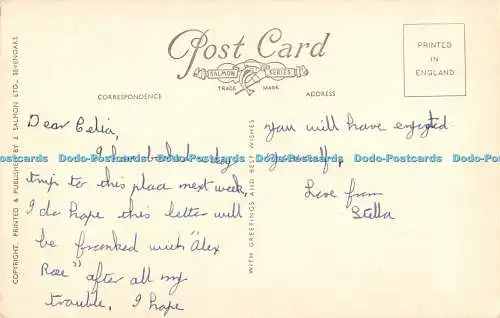 Post Card
SALMON SERIES
TRADE MARK
CORRESPONDENCE
ADDRESS
PRINTED
IN
ENGLAND
COPYRIGHT. PRINTED & PUBLISHED BY J. SALMON LTD., SEVENOAKS
WITH GREETINGS AND BEST WISHES
Dear Celia,
day
trip to this place next week,
I do hope this letter will
be franked with "Alex
Rose" after all my
trouble, I hope
you will have enjoyed
yourself,
Love from
Stella
Dodo-Postcards Dodo-Postcards Dodo-Postcards Dodo-Postcards Dodo-Postcards